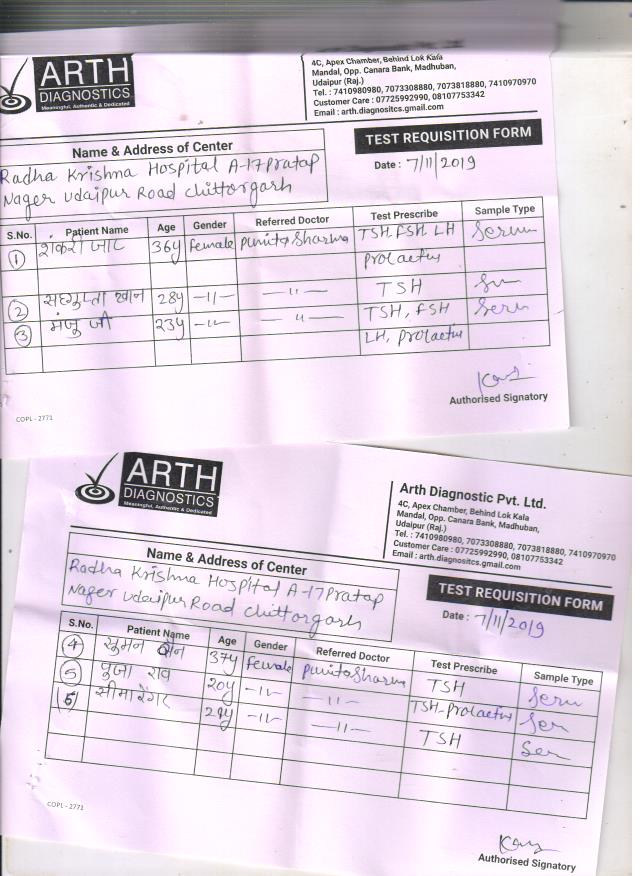 ARTH
DIAGNOSTICS
Meaningful, Authentic & Dedicated
4C, Apex Chamber, Behind Lok Kala
Mandal, Opp. Canara Bank, Madhuban,
Udaipur (Raj.)
Tel. : 7410980980, 7073308880, 7073818880, 7410970970
Customer Care : 07725992990, 08107753342
Email : arth.diagnositcs.gmail.com
TEST REQUISITION FORM
Date : 7/11/2019
Name & Address of Center
Radha Krishna Hospital A-17 Pratap
Nager Udaipur Road Chittorgarh
S.No. Patient Name Age Gender Referred Doctor Test Prescribe Sample Type
1 शकरी जाट 36y female Punita Sharma TSH, FSH, LH Serum
Prolactus
2 खान 28y -11- -11- TSH
3 मंजु जी 23y -11- -11- TSH, FSH Seru
LH, Prolactus
Authorised Signatory
COPL - 2771
ARTH
DIAGNOSTICS
Meaningful, Authentic & Dedicated
Arth Diagnostic Pvt. Ltd.
4C, Apex Chamber, Behind Lok Kala
Mandal, Opp. Canara Bank, Madhuban,
Udaipur (Raj.)
Tel. : 7410980980, 7073308880, 7073818880, 7410970970
Customer Care : 07725992990, 08107753342
Email : arth.diagnositcs.gmail.com
TEST REQUISITION FORM
Date : 7/11/2019
Name & Address of Center
Radha Krishna Hospital A-17 Pratap
Nager Udaipur Road Chittorgarh
S.No. Patient Name Age Gender Referred Doctor Test Prescribe Sample Type
4 सुमन जैन 37y female Punita Sharma TSH Seru
5 पुजा राव 20y -11- -11- TSH-Prolactus Ser
6 सीमा रेगर -11- -11- TSH Ser
Authorised Signatory
COPL - 2771